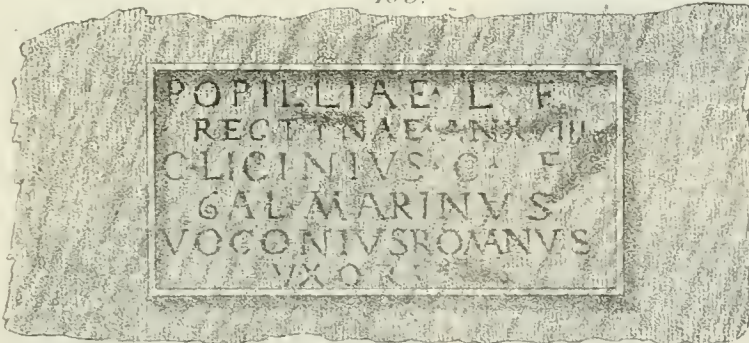 POPILLIAE L F
RECTINAE ANX III
C LICINIVS C F
GAL MARINVS
VOCONIVS ROMANVS